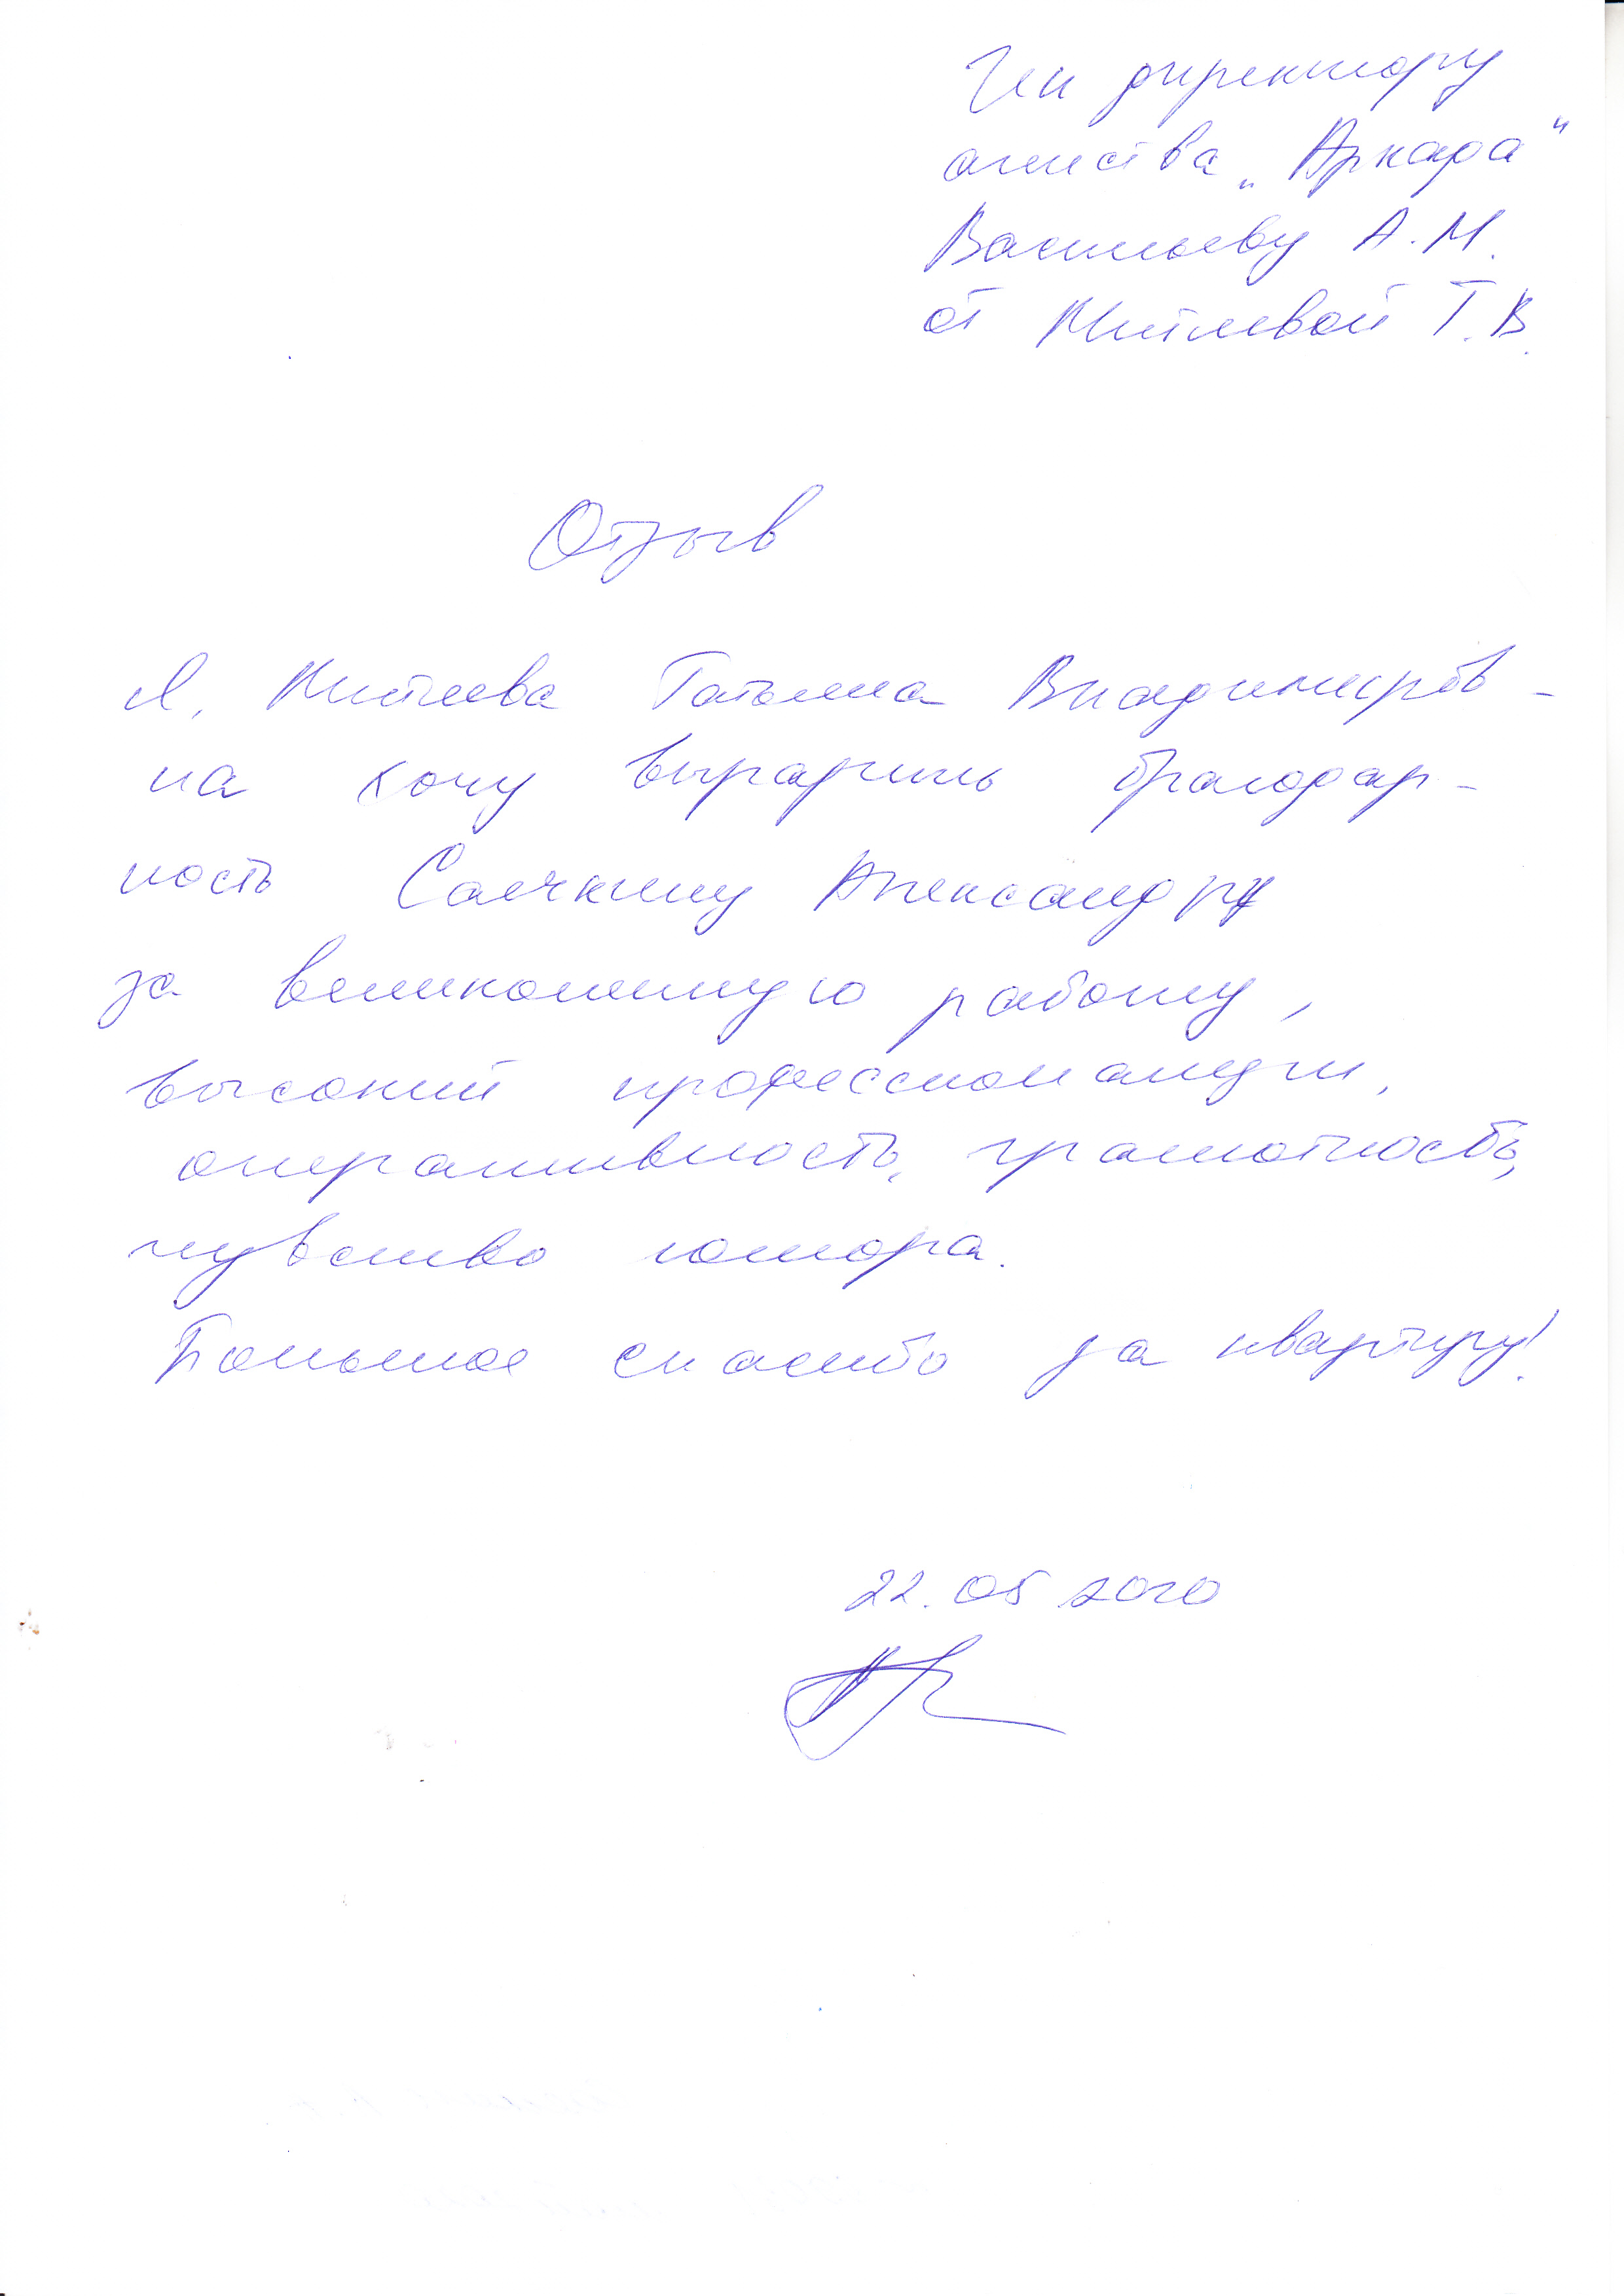 Ген директору
агенства „Аркада“
Васильеву А.М.
от Китаевой Т.В.
Отзыв
Я, Китаева Татьяна Владимиров-
на хочу выразить благодар-
ность Саечкину Александру
за великолепную работу,
высокий профессионализм,
оперативность, грамотность,
чувство юмора.
Большое спасибо за квартиру!
22.05 2020